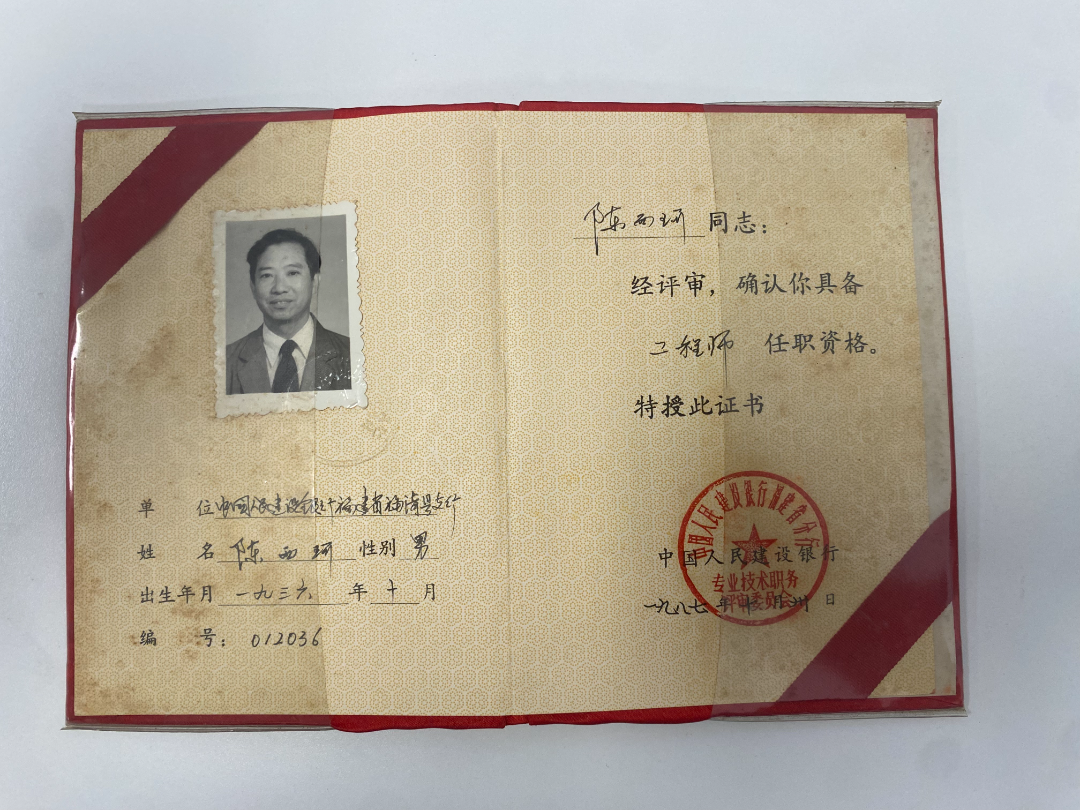 单 位 中国人民建设银行福建省福清县支行
姓 名 陈西珂 性别 男
出生年月 一九三六 年 十 月
编 号： 012036
陈西珂 同志：
经评审，确认你具备
工程师 任职资格。
特授此证书
中国人民建设银行
一九八七年 月 卅 日
中国人民建设银行福建省分行
专业技术职务
评审委员会